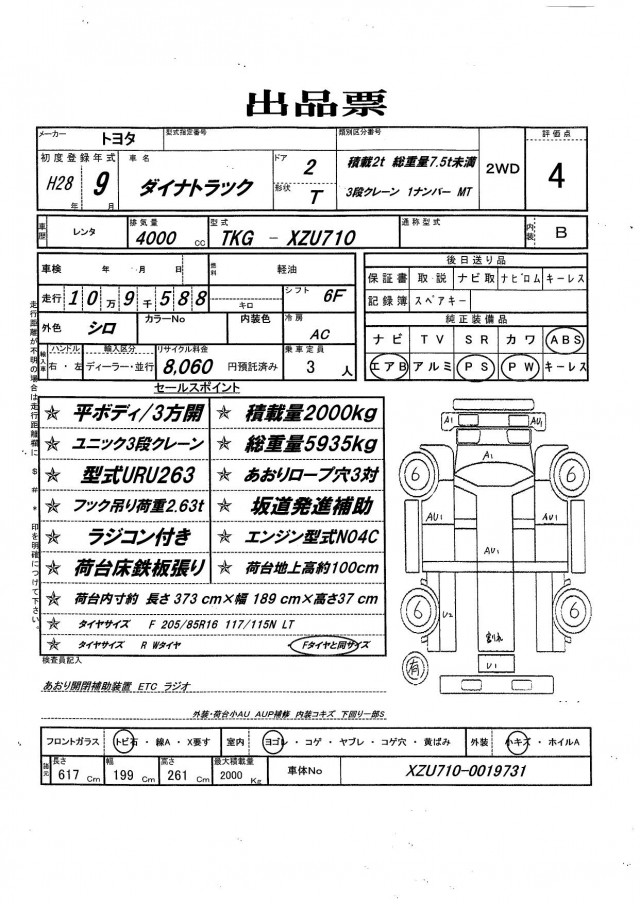 出品票
メーカー トヨタ 型式指定番号 類別区分番号 評価点
初度登録年式 車名 ドア 2 積載2t 総重量7.5t未満 2WD 4
H28年 9月 ダイナトラック 形状 T 3段クレーン 1ナンバー MT
車歴 レンタ 排気量 4000cc 型式 TKG － XZU710 通称型式 内装 B
車検 年 月 日 燃料 軽油 後日送り品
保証書 取・説 ナビ取 ナビロム キーレス
走行 10万9千588 キロ シフト 6F 記録簿 スペアキー
外色 シロ カラーNo 内装色 冷房 AC 純正装備品
ナビ TV SR カワ ABS
輸入車 ハンドル 右・左 輸入区分 ディーラー・並行 リサイクル料金 8,060 円預託済み 乗車定員 3人 エアB アルミ PS PW キーレス
走行距離が不明の場合は走行距離欄に $ # * 印を明確につけて下さい。
セールスポイント
平ボディ/3方開 積載量2000kg
ユニック3段クレーン 総重量5935kg
型式URU263 あおりロープ穴3対
フック吊り荷重2.63t 坂道発進補助
ラジコン付き エンジン型式N04C
荷台床鉄板張り 荷台地上高約100cm
荷台内寸約 長さ 373 cm×幅 189 cm×高さ37 cm
タイヤサイズ F 205/85R16 117/115N LT
タイヤサイズ R Wタイヤ Fタイヤと同サイズ
A1 AU1
A1
6 6
AU1 AU1
AU1
6 6
U2
有 U1
検査員記入
あおり開閉補助装置 ETC ラジオ
外装・荷台小AU AUP補修 内装コキズ 下回り一部S
フロントガラス トビ石・線A・X要す 室内 ヨゴレ・コゲ・ヤブレ・コゲ穴・黄ばみ 外装 小キズ・ホイルA
諸元 長さ 617 Cm 幅 199 Cm 高さ 261 Cm 最大積載量 2000 Kg 車体No XZU710-0019731